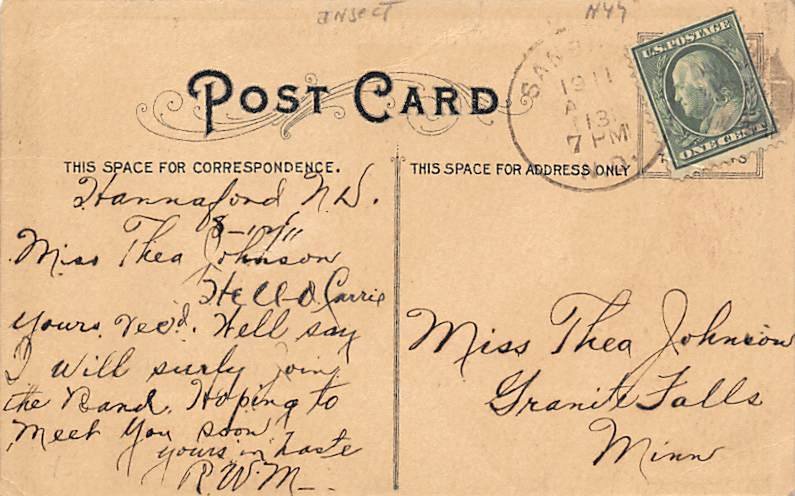 insect
POST CARD
U.S. POSTAGE
ONE CENT
1911
13
7 PM
N.D.
THIS SPACE FOR CORRESPONDENCE.
Hannaford N.D.
Miss Thea Johnson
Hello Carrie
Yours rec'd. Well say
I will surly join
the Band. Hoping to
Meet You soon
yours in haste
R.W.M.
THIS SPACE FOR ADDRESS ONLY
Miss Thea Johnson
Granite Falls
Minn